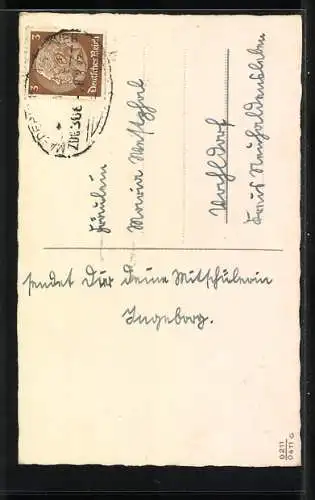 3 3
Deutsches Reich
Fräulein
Maria Westphal
Wahldorf
Kreis Neuhaldensleben
sendet Dir Deine Mitschülerin
Ingeborg.
0211
0411 G